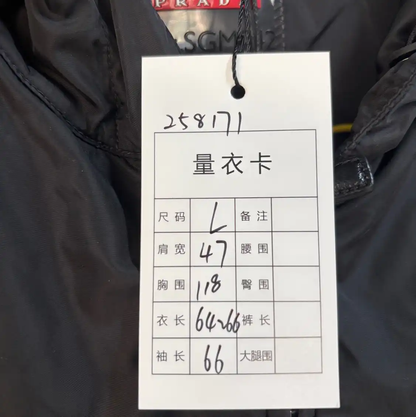 PRAD
258171
量衣卡
尺码 L 备注
肩宽 47 腰围
胸围 118 臀围
衣长 64-66 裤长
袖长 66 大腿围